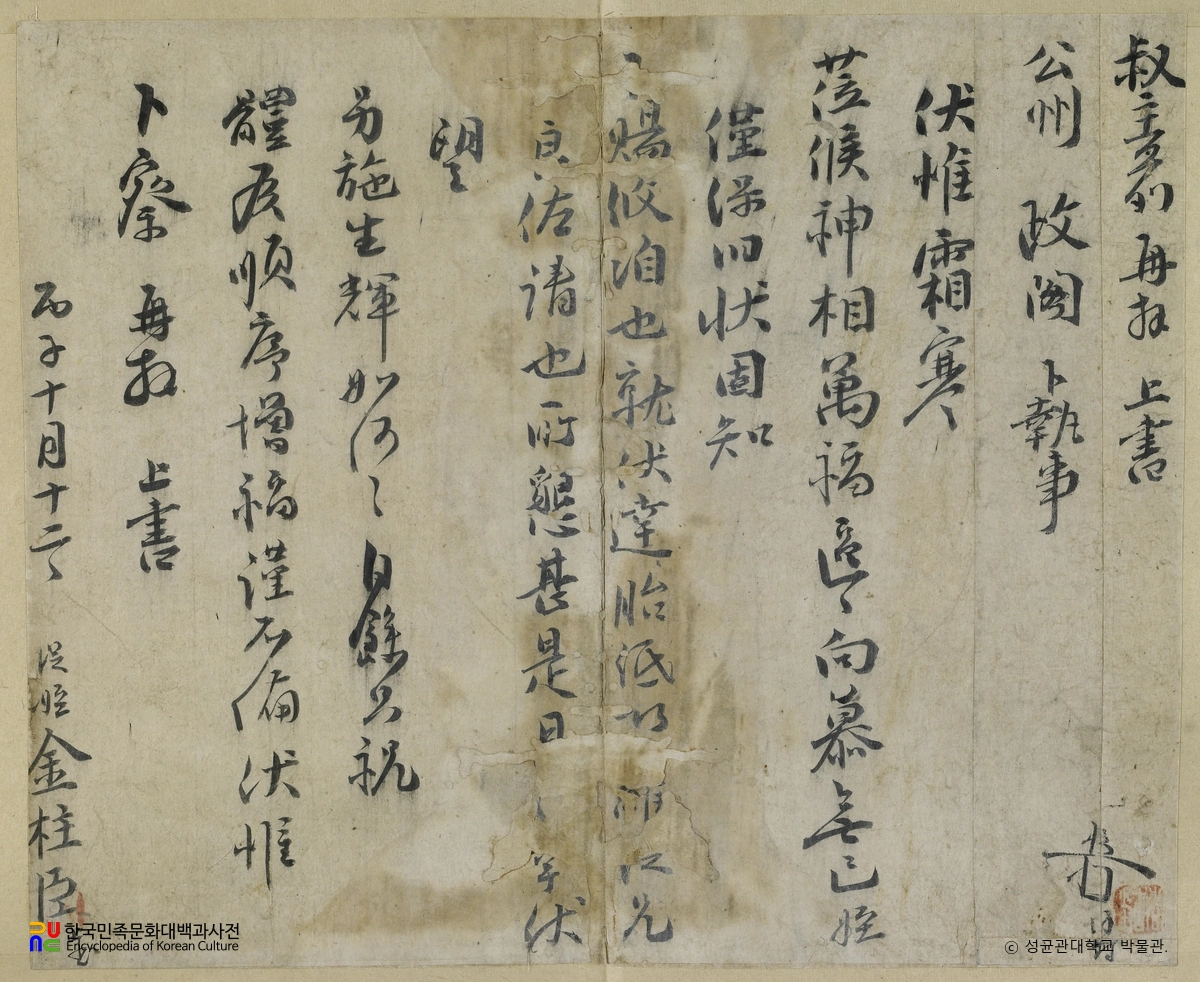 叔主前 再拜 上書
公州 政閤 下執事
伏惟霜寒
莅候神相萬福區〻向慕無已姪
僅保旧狀固知
賜攸洎也就伏達胎
佐請也所懇甚是日 伏
望
另施生輝如何〻自餘只祝
體履順序增福謹不備伏惟
下察 再拜 上書
丙子十月十二 從姪金柱臣
한국민족문화대백과사전
Encyclopedia of Korean Culture
© 성균관대학교 박물관.